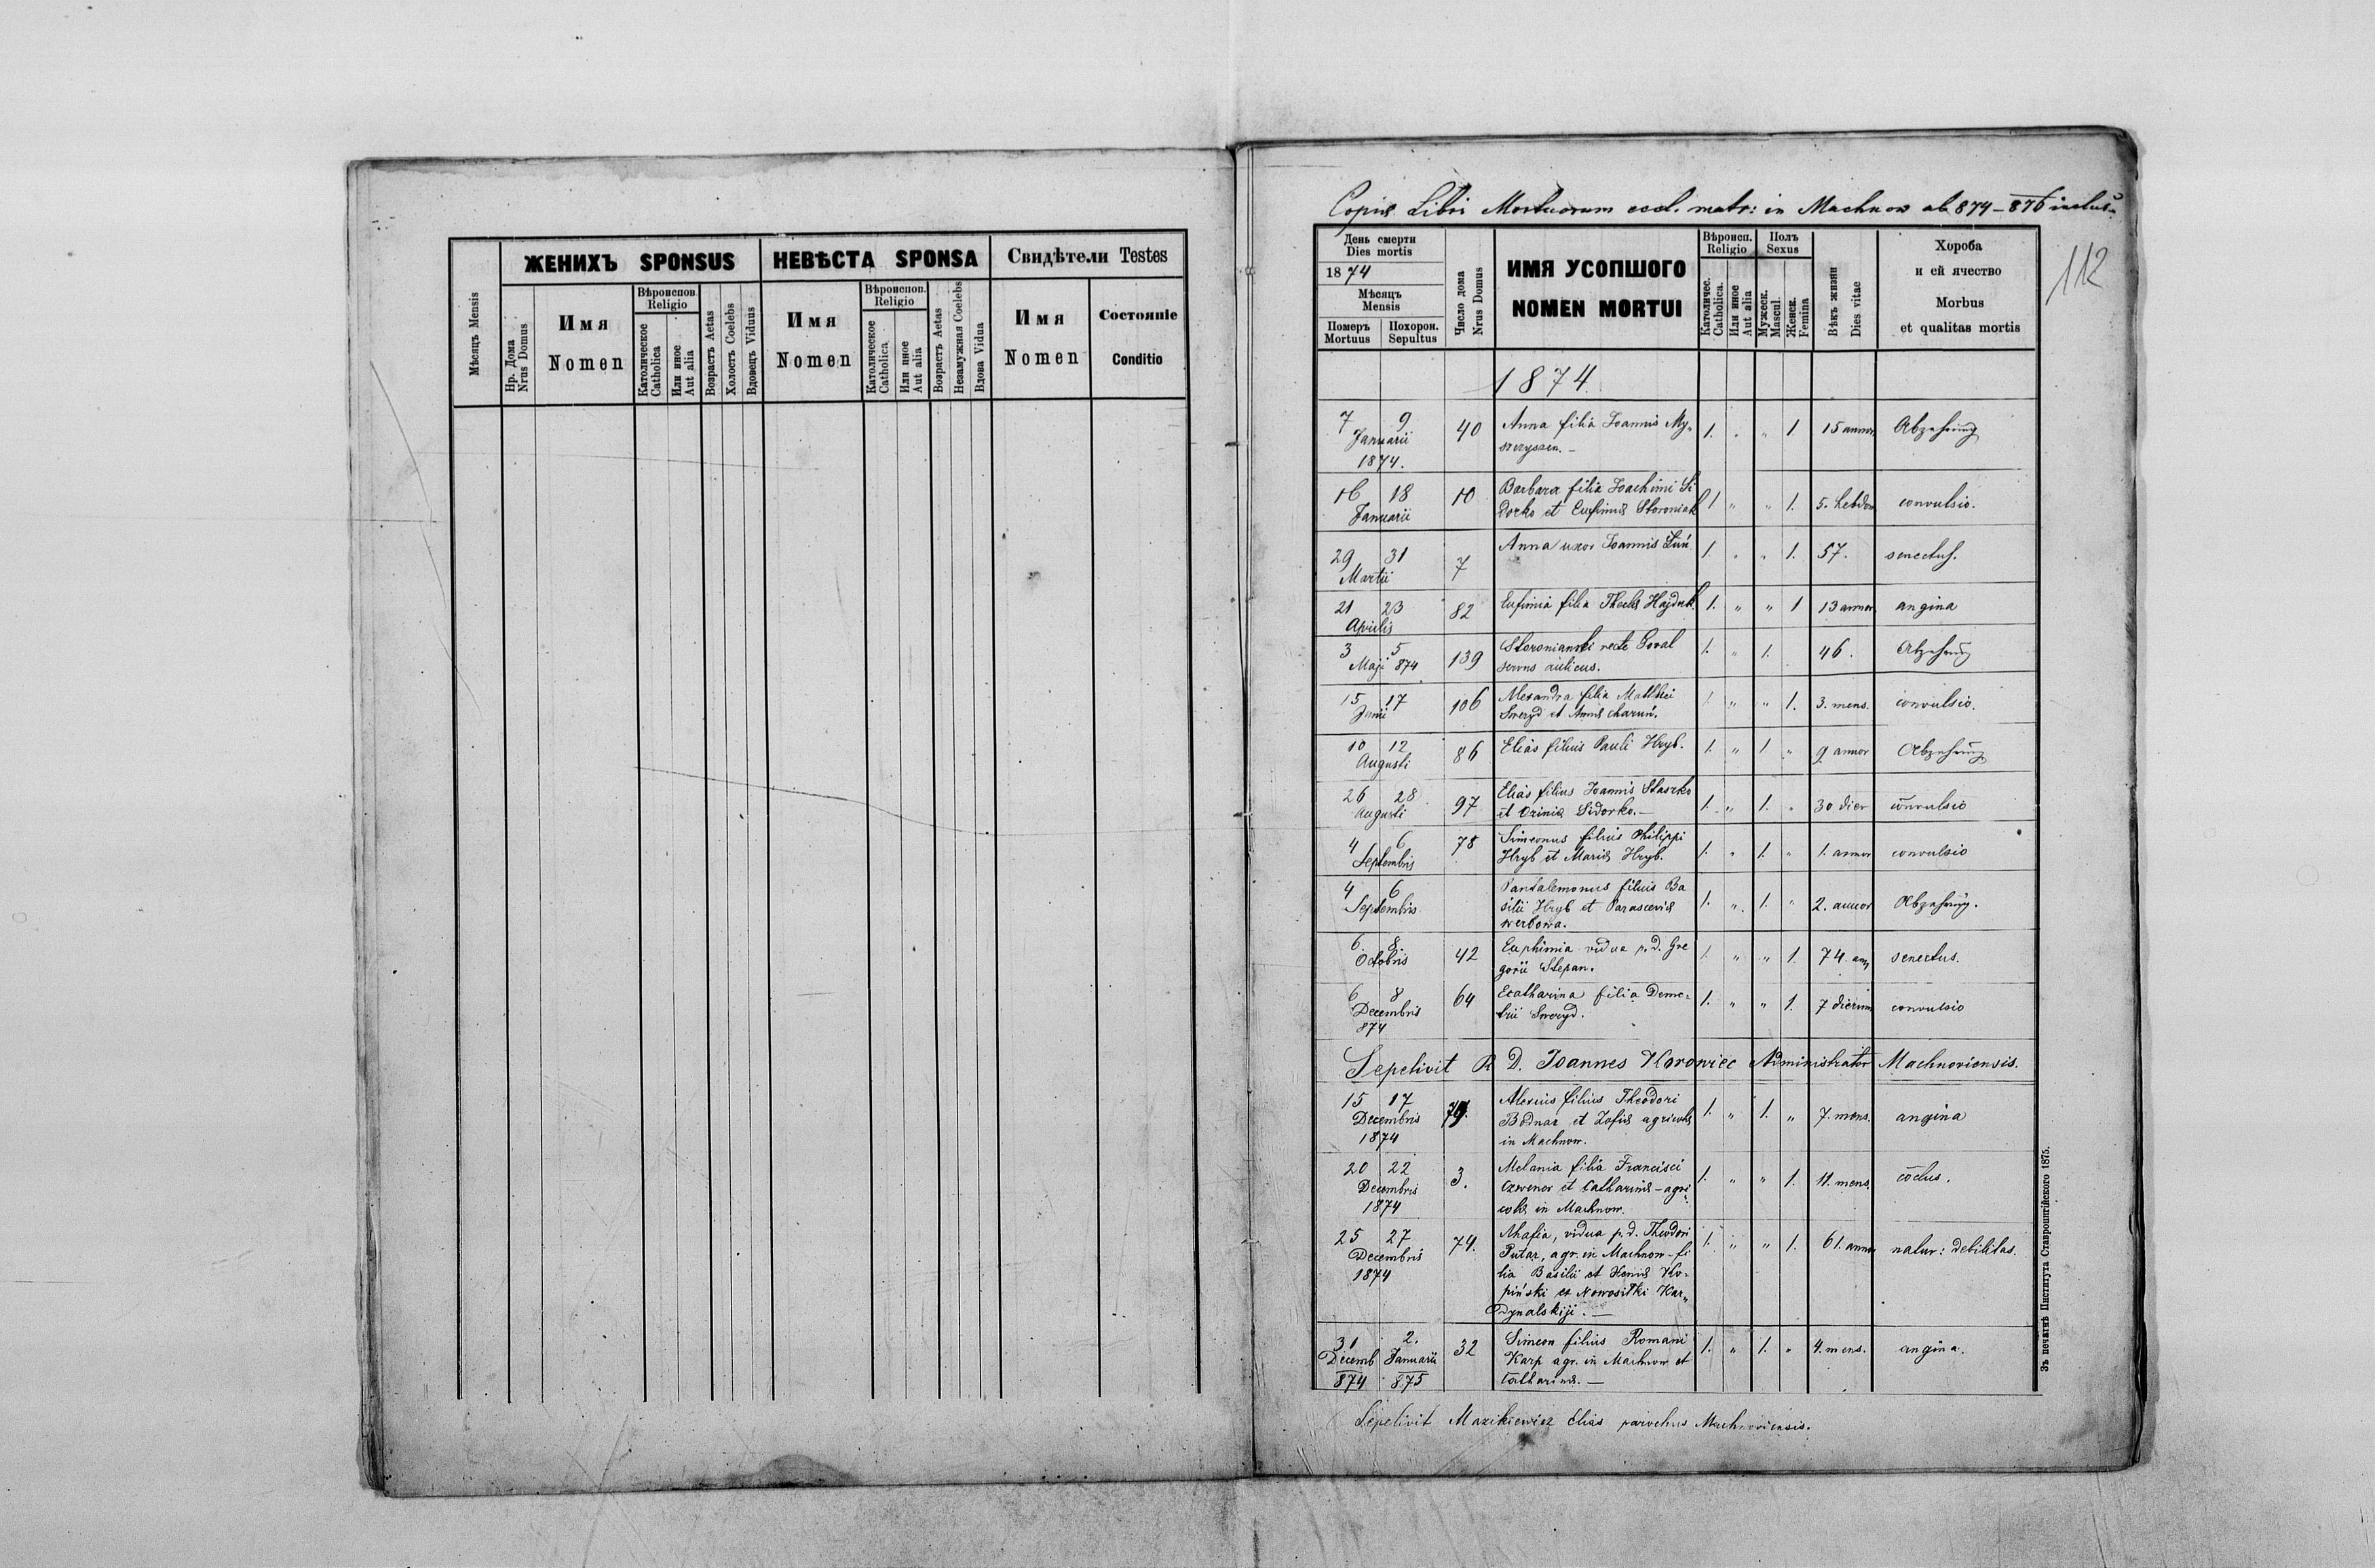 ЖЕНИХЪ SPONSUS
НЕВѢСТА SPONSA
Свидѣтели Testes
Мѣсяцъ Mensis
Нр. Дома
Nrus Domus
Имя
Nomen
Вѣроиспов.
Religio
Католическое
Catholica
Или иное
Aut alia
Возрастъ Aetas
Холостъ Coelebs
Вдовецъ Viduus
Имя
Nomen
Вѣроиспов.
Religio
Католическое
Catholica
Или иное
Aut alia
Возрастъ Aetas
Незамужная Coelebs
Вдова Vidua
Имя
Nomen
Состояніе
Conditio
Copia Libri Mortuorum eccl. matr: in Machnow ab 874–876 inclus.
112
День смерти
Dies mortis
1874
Мѣсяцъ
Mensis
Померъ
Mortuus
Похорон.
Sepultus
Число дома
Nrus Domus
ИМЯ УСОПШОГО
NOMEN MORTUI
Вѣроисп.
Religio
Католичес.
Catholica.
Или иное
Aut alia
Полъ
Sexus
Мужеск.
Mascul.
Женск.
Femina
Вѣкъ жизни
Dies vitae
Хороба
и ей ячество
Morbus
et qualitas mortis
1874.
7 9 40 Anna filia Joannis My- 1. " " 1 15 annor Abzehrung
Januarii
1874.
16 18 10 Barbara filia Joachimi Si- 1 " " 1. 5. hebdom convulsio.
Januarii dorko et Eufimiæ Storoniak
29 31 7 Anna uxor Joannis 1. " " 1. 57. senectus.
Martii
21 23 82 Eufimia filia Theclæ Hajduk. 1. " " 1 13 annor angina
Aprilis
3 5 139 Storonianski recte Goral 1. " 1. 46. Abzehrung
Maji 874 servus aulicus.
15 17 106 Alexandra filia Matthei 1 " " 1. 3. mens. convulsio.
Junii Sweryd et Annæ Charuń.
10 12 86 Elias filius Pauli Hryb. 1. " 1 " 9 annor Abzehrung
Augusti
26 28 97 Elias filius Joannis Staszko 1. " 1. " 30 dier convulsio
Augusti et Oriniæ Sidorko.—
4 6 78 Simeonus filius Philippi 1. " 1. " 1. annor convulsio
Septembris Hryb et Mariæ Hryb.
4 6 Pantalemonus filius Ba 1. " 1. " 2. annor Abzehrung.
Septembris silii Hryb et Parasceviæ
Werbowa.
6 8 42 Euphimia vidua p.d. Gre 1. " " 1. 74. ann senectus.
Octobris gorii Stepan.
6 8 64 Ecatharina filia Deme- 1. " " 1. 7 dierum convulsio
Decembris trii Sweryd.
874
Sepelivit R D. Joannes Korowiec Administrator Machnoviensis.
15 17 Alexius filius Theodori 1. " 1. " 7. mens. angina
Decembris Bodnar et Zofiæ agricolæ
1874 in Machnow.
20 22 3. Melania filia Francisci 1. " " 1. 11. mens.
Decembris et Catharinæ – agri
1874 colæ in Machnow.
25 27 74. Ahafia, vidua p.d. Theodori 1. " " 1. 61. annor natur: debilitas.
Decembris Putar, agr. in Machnow – fi
1874 lia Basilii et Heniæ Ko-
piński et Nowosiłki Kar-
dynalskiji.—
31 2. 32 Simeon filius Romani 1. " 1. " 4. mens. angina.
Decemb Januarii Karp agr. in Machnow et
874 875 Catharinæ.—
Sepelivit Mazikiewicz Elias parochus Machnoviensis.
Зъ печатнѣ Института Ставропигійского 1875.